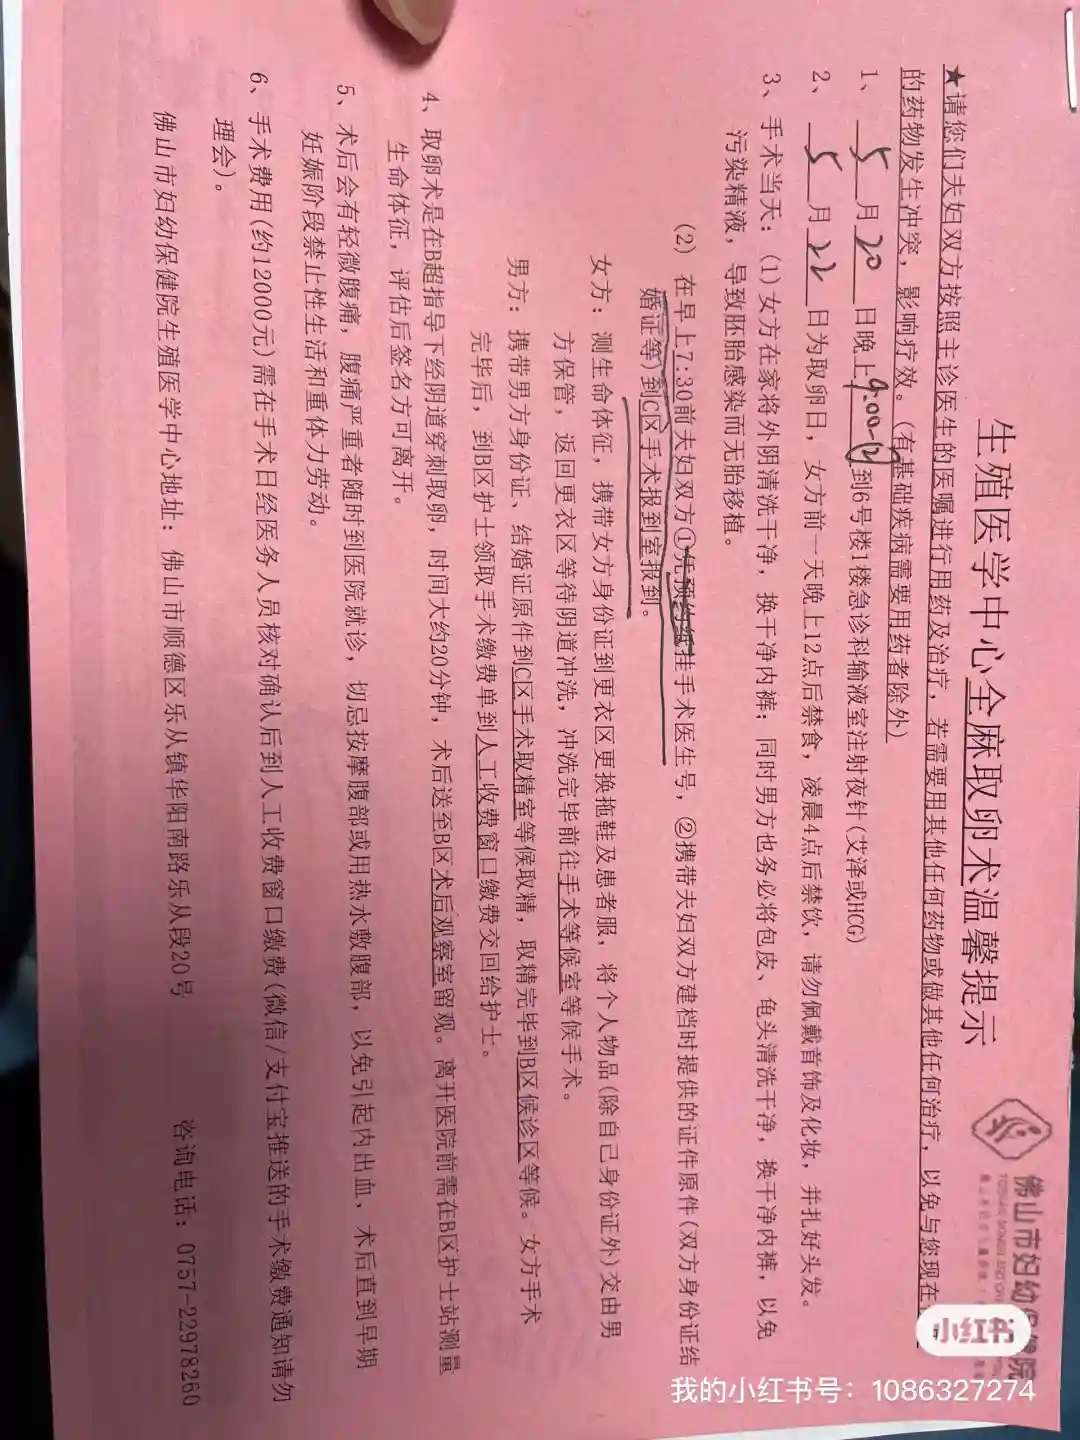 佛山市妇幼保健院
生殖医学中心全麻取卵术温馨提示
★请您们夫妇双方按照主诊医生的医嘱进行用药及治疗，若需要用其他任何药物或做其他任何治疗，以免与您现在
的药物发生冲突，影响疗效。（有基础疾病需要用药者除外）
1、 5 月 20 日晚上 9:00-12 到6号楼1楼急诊科输液室注射夜针(艾泽或HCG)
2、 5 月 22 日为取卵日，女方前一天晚上12点后禁食，凌晨4点后禁饮，请勿佩戴首饰及化妆，并扎好头发。
3、手术当天：（1）女方在家将外阴清洗干净，换干净内裤；同时男方也务必将包皮、龟头清洗干净，换干净内裤，以免
污染精液，导致胚胎感染而无胎移植。
（2）在早上7:30前夫妇双方①凭预约纸挂手术医生号，②携带夫妇双方建档时提供的证件原件(双方身份证结
婚证等)到C区手术报到室报到。
女方：测生命体征，携带女方身份证到更衣区更换拖鞋及患者服，将个人物品(除自己身份证外)交由男
方保管，返回更衣区等待阴道冲洗，冲洗完毕前往手术等候室等候手术。
男方：携带男方身份证、结婚证原件到C区手术取精室等候取精，取精完毕到B区候诊区等候。女方手术
完毕后，到B区护士领取手术缴费单到人工收费窗口缴费交回给护士。
4、取卵术是在B超指导下经阴道穿刺取卵，时间大约20分钟，术后送至B区术后观察室留观。离开医院前需在B区护士站测量
生命体征，评估后签名方可离开。
5、术后会有轻微腹痛，腹痛严重者随时到医院就诊，切忌按摩腹部或用热水敷腹部，以免引起内出血，术后直到早期
妊娠阶段禁止性生活和重体力劳动。
6、手术费用(约12000元)需在手术日经医务人员核对确认后到人工收费窗口缴费(微信/支付宝推送的手术缴费通知请勿
理会)。
佛山市妇幼保健院生殖医学中心地址：佛山市顺德区乐从镇华阳南路乐从段20号 咨询电话：0757-22978260
小红书
我的小红书号：1086327274